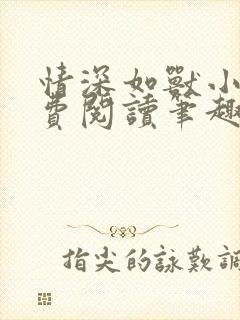 情深如獸小
費閱讀筆趣
指尖的詠歎調